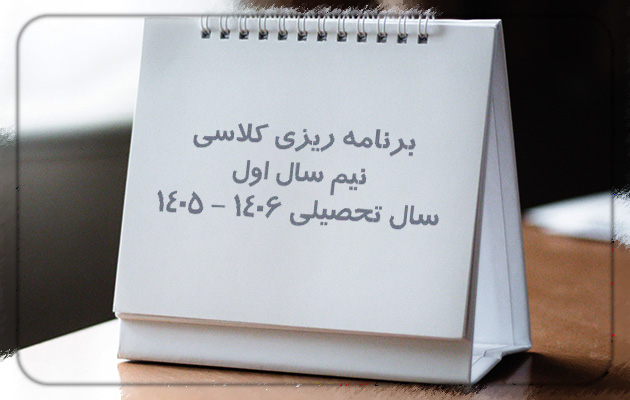 برنامه ریزی کلاسی
نیم سال اول
سال تحصیلی ۱۴۰۶ - ۱۴۰۵